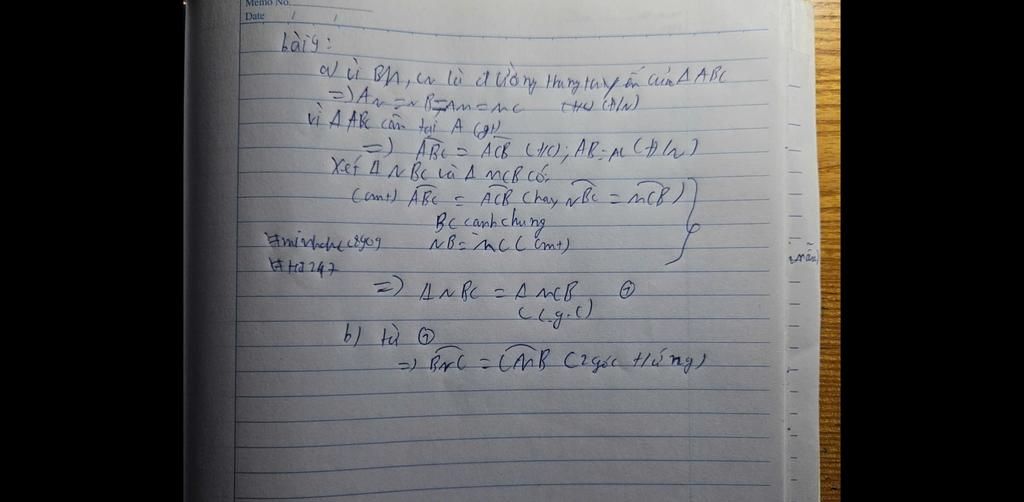 Memo No.
Date / /
bài 9:
a) vì BM, CN là đường trung tuyến của Δ ABC
=) AN = NB = AM = MC (t/c)
vì Δ ABC cân tại A (gt)
=) ABC = ACB (t/c); AB = AC (t/c)
Xét Δ NBC và Δ MCB có:
(cmt) ABC = ACB (hay NBC = MCB)
BC cạnh chung
NB = MC (cmt)
=) Δ NBC = Δ MCB ①
(c.g.c)
b) từ ①
=) BNC = CMB (2 góc t/ứng)